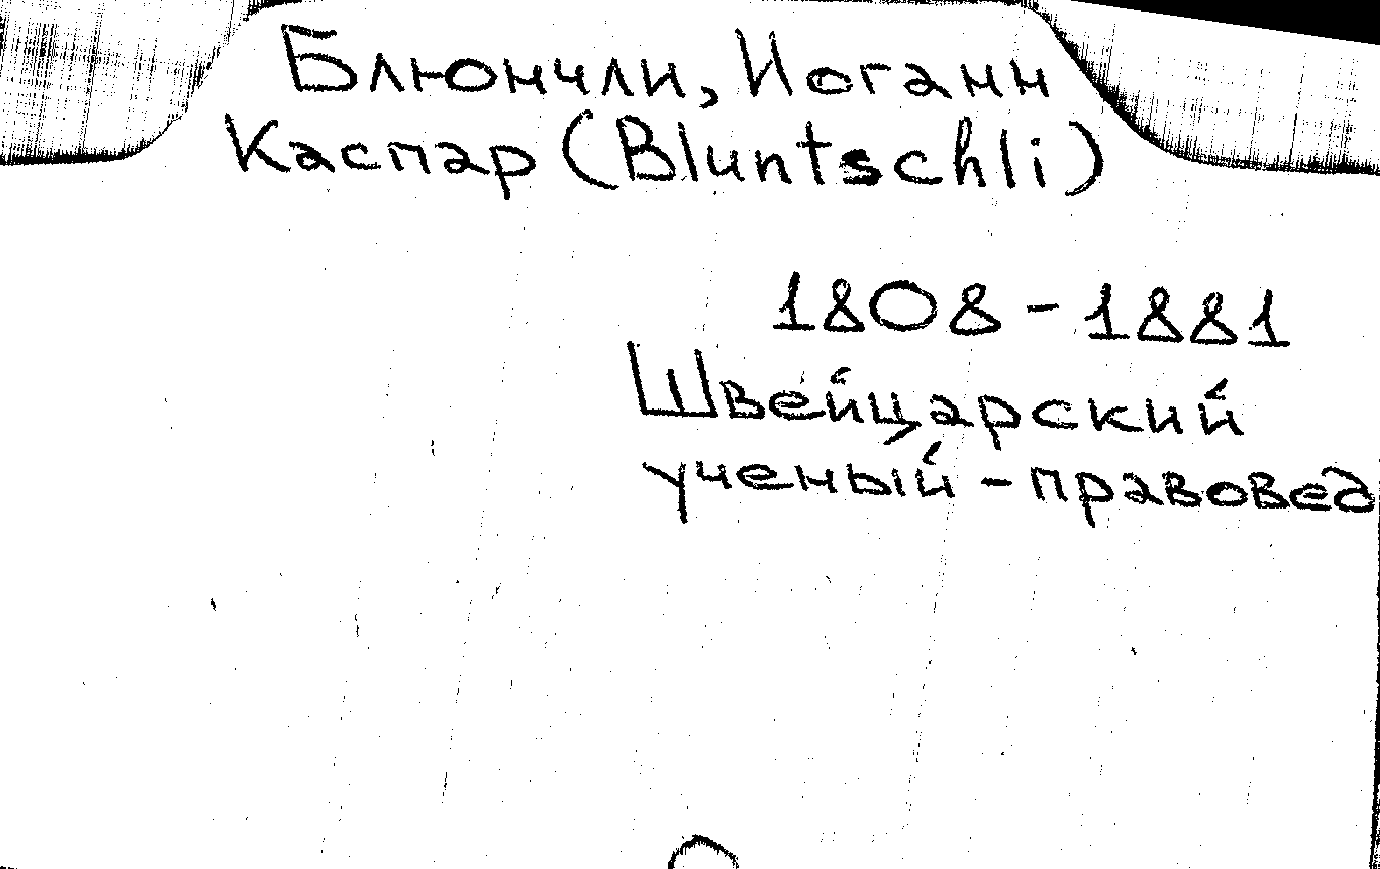 Блюнчли, Иоганн
Каспар (Bluntschli)
1808 - 1881
Швейцарский
ученый - правовед